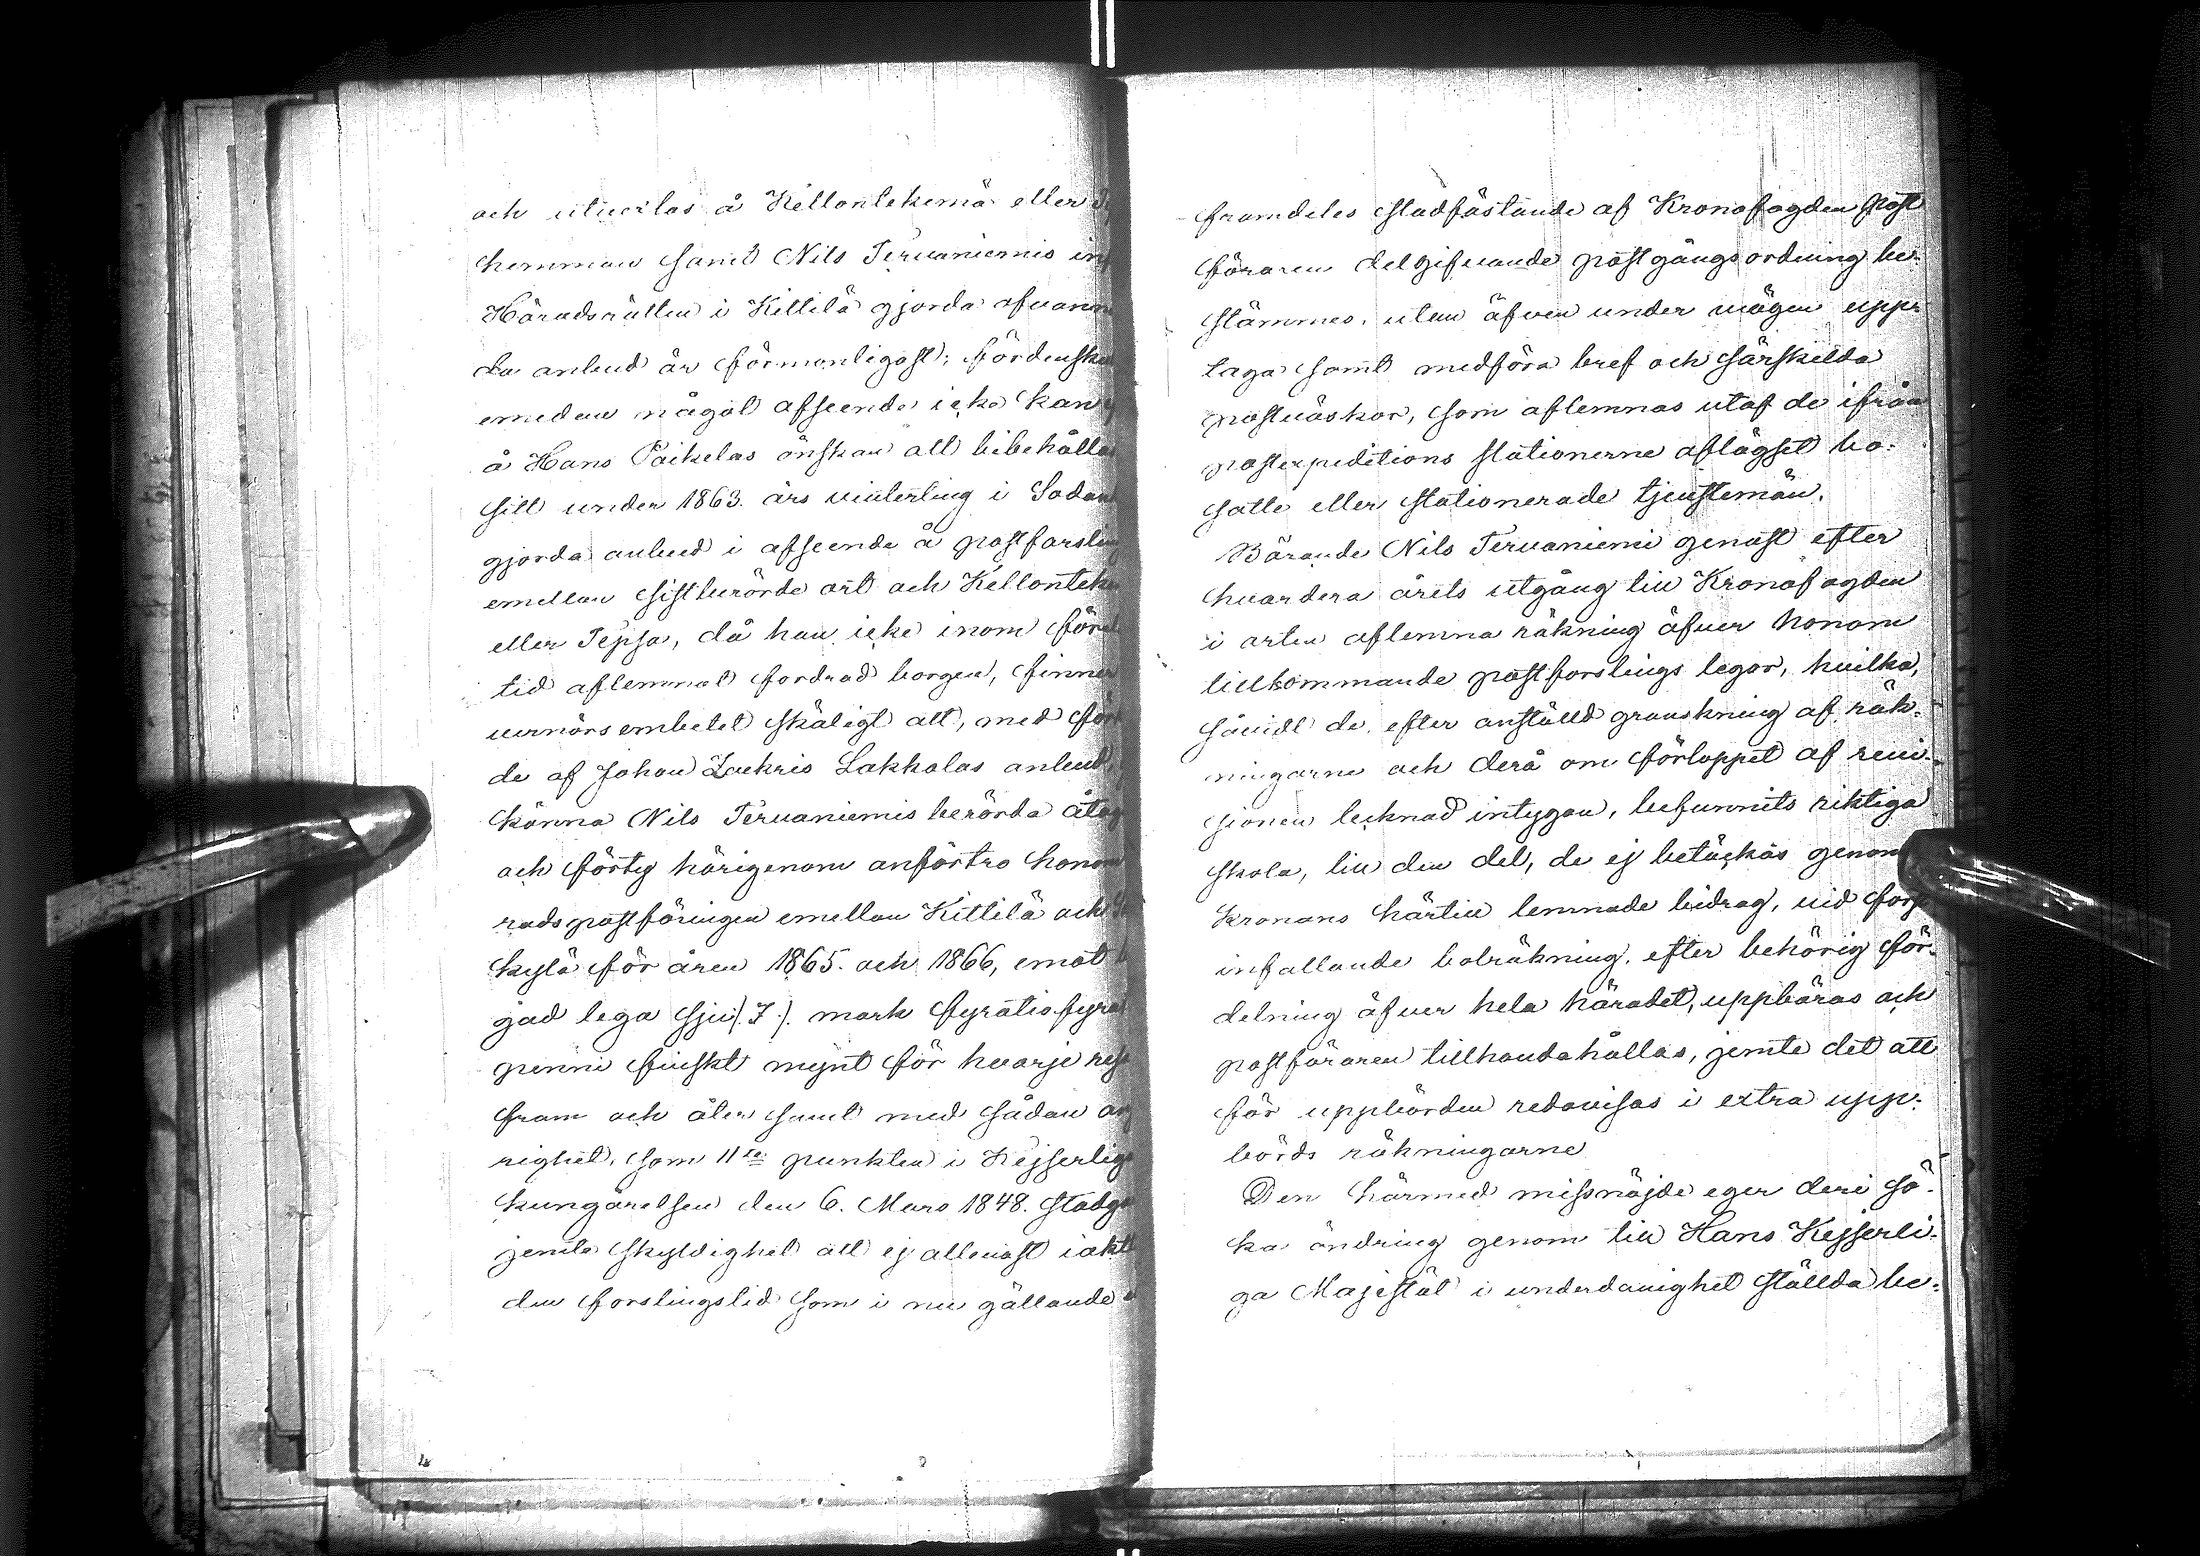 och utvexlas å Kellontekemä eller
hemman samt Nils Tervaniemis
Häradsrätten i Kittilä gjorda
da anbud är förmonligast; fördensku
emedan något afseende icke kan
å Hans Paikelas önskan att bibehålla
sitt under 1863 års vinterting i Sodan
gjorda anbud i afseende å postforslin
emellan sistberörde ort och Kellonteke
eller Tepsa, då han icke inom före
tid aflemnat fordrad borgen, finner
vernörsembetet skäligt att, med för
de af Johan Zackris Lakkalas anbud,
känna Nils Tervaniemis berörda åtag
och förty härigenom anförtro honom
radspostföringen emellan Kittilä och
kylä för åren 1865. och 1866, emot
gad lega sju /.7./. mark fyratiofyra
penni finskt mynt för hvarje resa
fram och åter samt med sådan
righet, som 11te punkten i Kejserliga
kungörelsen den 6. Mars 1848. stadga
jemte skyldighet att ej allenast iakt
den forslingstid som i nu gällande
framdeles stadfästande af Kronofogden post
föraren delgifvande postgångsordning be-
stämmes, utan äfven under vägen upp-
taga samt medföra bref och särskilda
postväskor, som aflemnas utaf de ifrån
postexpeditions stationerne aflägset bo-
satte eller stationerade tjenstemän.
Börande Nils Tervaniemi genast efter
hvardera årets utgång till Kronofogden
i orten aflemna räkning öfver honom
tillkommande postforslings legor, hvilka,
såvidt de, efter anställd granskning af räk-
ningarne och derå om förloppet af revi-
sionen tecknad intygan, befunnits riktiga
skola, till den del, de ej betäckas genom
kronans härtill lemnade bidrag, vid först
infallande bolräkning, efter behörig för-
delning öfver hela häradet, uppbäras och
postföraren tillhandahållas, jemte det att
för uppbörden redovisas i extra upp-
börds räkningarne
Den härmed missnöjde eger deri sö-
ka ändring genom till Hans Kejserli-
ga Majestät i underdånighet ställda be-